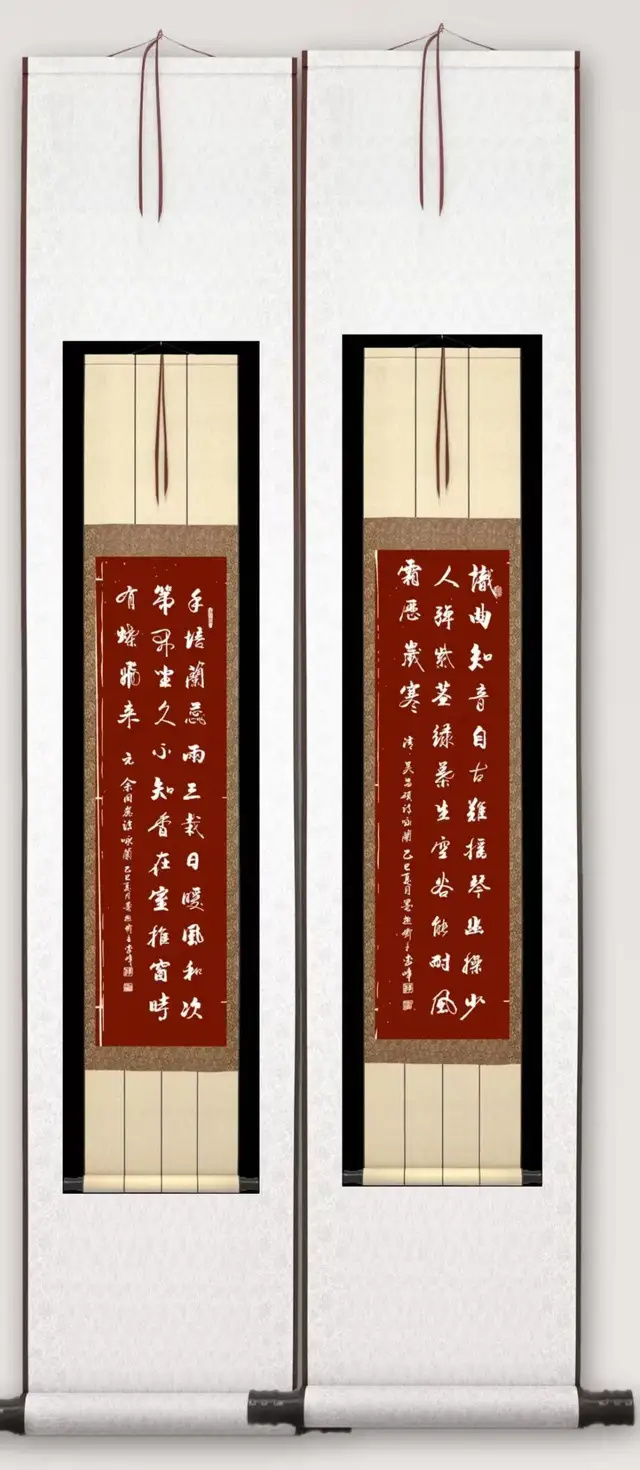 識曲知音自古難摇琴幽操少
人弹紫莖緑葉生空谷能耐風
霜歷歲寒 清吴昌碩詩咏蘭 乙巳夏月
手培蘭蕊兩三栽日暖風和次
第開坐久不知香在室推窗時
有蝶飛來 元余同麓詩咏蘭 乙巳夏月